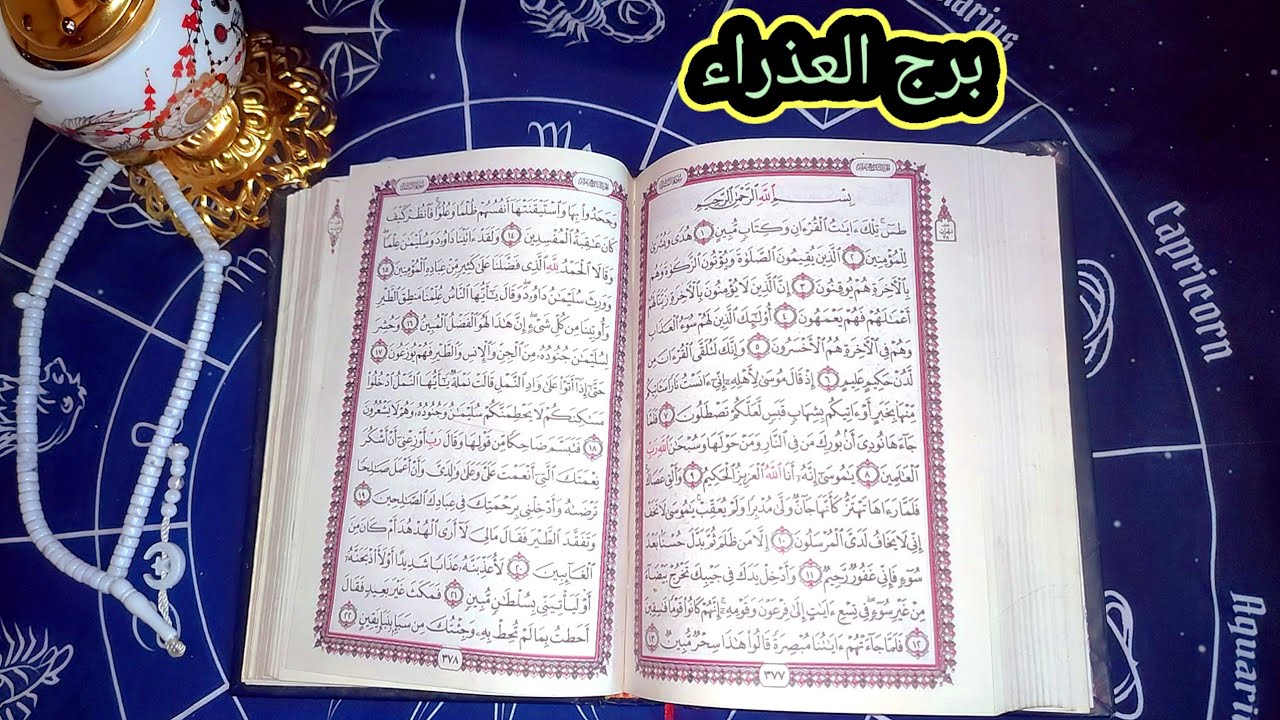 برج العذراء
Aquarius
Capricorn
Aquarius
بِسْمِ اللَّهِ الرَّحْمَٰنِ الرَّحِيمِ
طسٓ ۚ تِلْكَ ءَايَٰتُ الْقُرْءَانِ وَكِتَابٍ مُّبِينٍ ١ هُدًى وَبُشْرَىٰ
لِلْمُؤْمِنِينَ ٢ الَّذِينَ يُقِيمُونَ الصَّلَوٰةَ وَيُؤْتُونَ الزَّكَوٰةَ وَهُم
بِالْآخِرَةِ هُمْ يُوقِنُونَ ٣ إِنَّ الَّذِينَ لَا يُؤْمِنُونَ بِالْآخِرَةِ زَيَّنَّا لَهُمْ
أَعْمَٰلَهُمْ فَهُمْ يَعْمَهُونَ ٤ أُو۟لَٰٓئِكَ الَّذِينَ لَهُمْ سُوٓءُ الْعَذَابِ
وَهُمْ فِي الْآخِرَةِ هُمُ الْأَخْسَرُونَ ٥ وَإِنَّكَ لَتُلَقَّى الْقُرْءَانَ مِن
لَّدُنْ حَكِيمٍ عَلِيمٍ ٦ إِذْ قَالَ مُوسَىٰ لِأَهْلِهِۦٓ إِنِّيٓ ءَانَسْتُ نَارًا سَـَٔاتِيكُم
مِّنْهَا بِخَبَرٍ أَوْ ءَاتِيكُم بِشِهَابٍ قَبَسٍ لَّعَلَّكُمْ تَصْطَلُونَ ٧ فَلَمَّا
جَآءَهَا نُودِيَ أَنۢ بُورِكَ مَن فِي النَّارِ وَمَنْ حَوْلَهَا وَسُبْحَٰنَ اللَّهِ رَبِّ
الْعَٰلَمِينَ ٨ يَٰمُوسَىٰٓ إِنَّهُۥٓ أَنَا اللَّهُ الْعَزِيزُ الْحَكِيمُ ٩ وَأَلْقِ عَصَاكَ
فَلَمَّا رَءَاهَا تَهْتَزُّ كَأَنَّهَا جَآنٌّ وَلَّىٰ مُدْبِرًا وَلَمْ يُعَقِّبْ ۚ يَٰمُوسَىٰ لَا تَخَفْ
إِنِّي لَا يَخَافُ لَدَيَّ الْمُرْسَلُونَ ١٠ إِلَّا مَن ظَلَمَ ثُمَّ بَدَّلَ حُسْنًۢا بَعْدَ
سُوٓءٍ فَإِنِّي غَفُورٌ رَّحِيمٌ ١١ وَأَدْخِلْ يَدَكَ فِي جَيْبِكَ تَخْرُجْ بَيْضَآءَ
مِنْ غَيْرِ سُوٓءٍ ۖ فِي تِسْعِ ءَايَٰتٍ إِلَىٰ فِرْعَوْنَ وَقَوْمِهِۦٓ ۚ إِنَّهُمْ كَانُوا۟ قَوْمًا فَٰسِقِينَ
١٢ فَلَمَّا جَآءَتْهُمْ ءَايَٰتُنَا مُبْصِرَةً قَالُوا۟ هَٰذَا سِحْرٌ مُّبِينٌ ١٣
٣٧٧
وَجَحَدُوا۟ بِهَا وَاسْتَيْقَنَتْهَآ أَنفُسُهُمْ ظُلْمًا وَعُلُوًّا ۚ فَانظُرْ كَيْفَ
كَانَ عَٰقِبَةُ الْمُفْسِدِينَ ١٤ وَلَقَدْ ءَاتَيْنَا دَاوُۥدَ وَسُلَيْمَٰنَ عِلْمًا ۖ
وَقَالَا الْحَمْدُ لِلَّهِ الَّذِي فَضَّلَنَا عَلَىٰ كَثِيرٍ مِّنْ عِبَادِهِ الْمُؤْمِنِينَ ١٥
وَوَرِثَ سُلَيْمَٰنُ دَاوُۥدَ ۖ وَقَالَ يَٰٓأَيُّهَا النَّاسُ عُلِّمْنَا مَنطِقَ الطَّيْرِ
وَأُوتِينَا مِن كُلِّ شَيْءٍ ۖ إِنَّ هَٰذَا لَهُوَ الْفَضْلُ الْمُبِينُ ١٦ وَحُشِرَ
لِسُلَيْمَٰنَ جُنُودُهُۥ مِنَ الْجِنِّ وَالْإِنسِ وَالطَّيْرِ فَهُمْ يُوزَعُونَ ١٧
حَتَّىٰٓ إِذَآ أَتَوْا۟ عَلَىٰ وَادِ النَّمْلِ قَالَتْ نَمْلَةٌ يَٰٓأَيُّهَا النَّمْلُ ادْخُلُوا۟
مَسَٰكِنَكُمْ لَا يَحْطِمَنَّكُمْ سُلَيْمَٰنُ وَجُنُودُهُۥ وَهُمْ لَا يَشْعُرُونَ
١٨ فَتَبَسَّمَ ضَاحِكًا مِّن قَوْلِهَا وَقَالَ رَبِّ أَوْزِعْنِيٓ أَنْ أَشْكُرَ
نِعْمَتَكَ الَّتِيٓ أَنْعَمْتَ عَلَيَّ وَعَلَىٰ وَٰلِدَيَّ وَأَنْ أَعْمَلَ صَٰلِحًا
تَرْضَىٰهُ وَأَدْخِلْنِي بِرَحْمَتِكَ فِي عِبَادِكَ الصَّٰلِحِينَ ١٩
وَتَفَقَّدَ الطَّيْرَ فَقَالَ مَا لِيَ لَآ أَرَى الْهُدْهُدَ أَمْ كَانَ مِنَ
الْغَآئِبِينَ ٢٠ لَأُعَذِّبَنَّهُۥ عَذَابًا شَدِيدًا أَوْ لَأَا۟ذْبَحَنَّهُۥٓ
أَوْ لَيَأْتِيَنِّي بِسُلْطَٰنٍ مُّبِينٍ ٢١ فَمَكَثَ غَيْرَ بَعِيدٍ فَقَالَ
أَحَطتُ بِمَا لَمْ تُحِطْ بِهِۦ وَجِئْتُكَ مِن سَبَإٍۭ بِنَبَإٍ يَقِينٍ ٢٢
٣٧٨